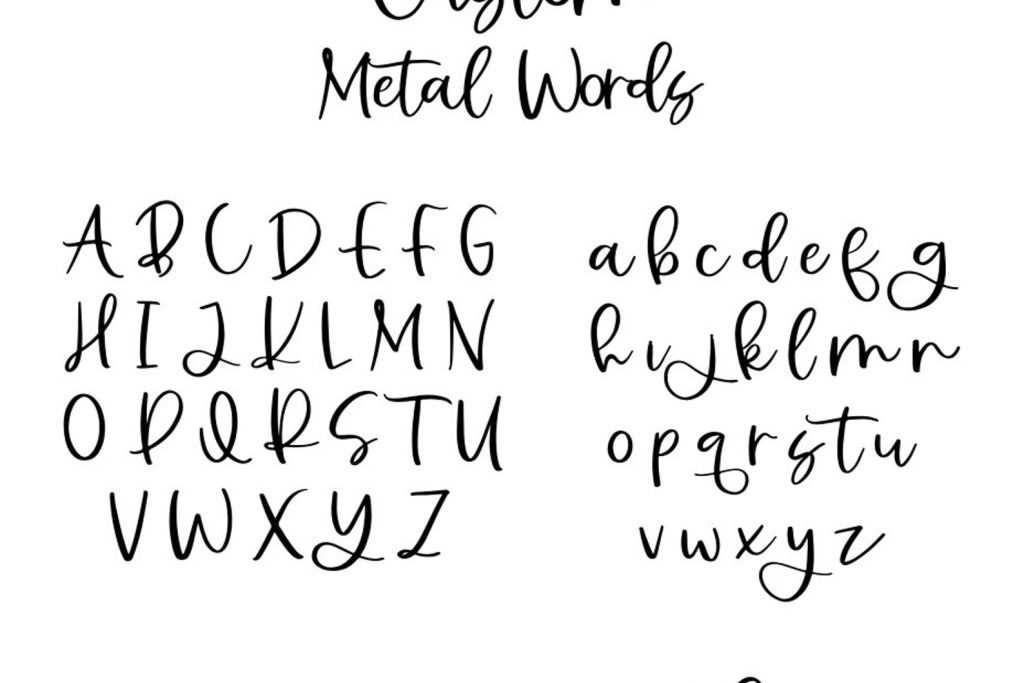 Metal Words
A B C D E F G
H I J K L M N
O P Q R S T U
V W X Y Z
a b c d e f g
h i j k l m n
o p q r s t u
v w x y z